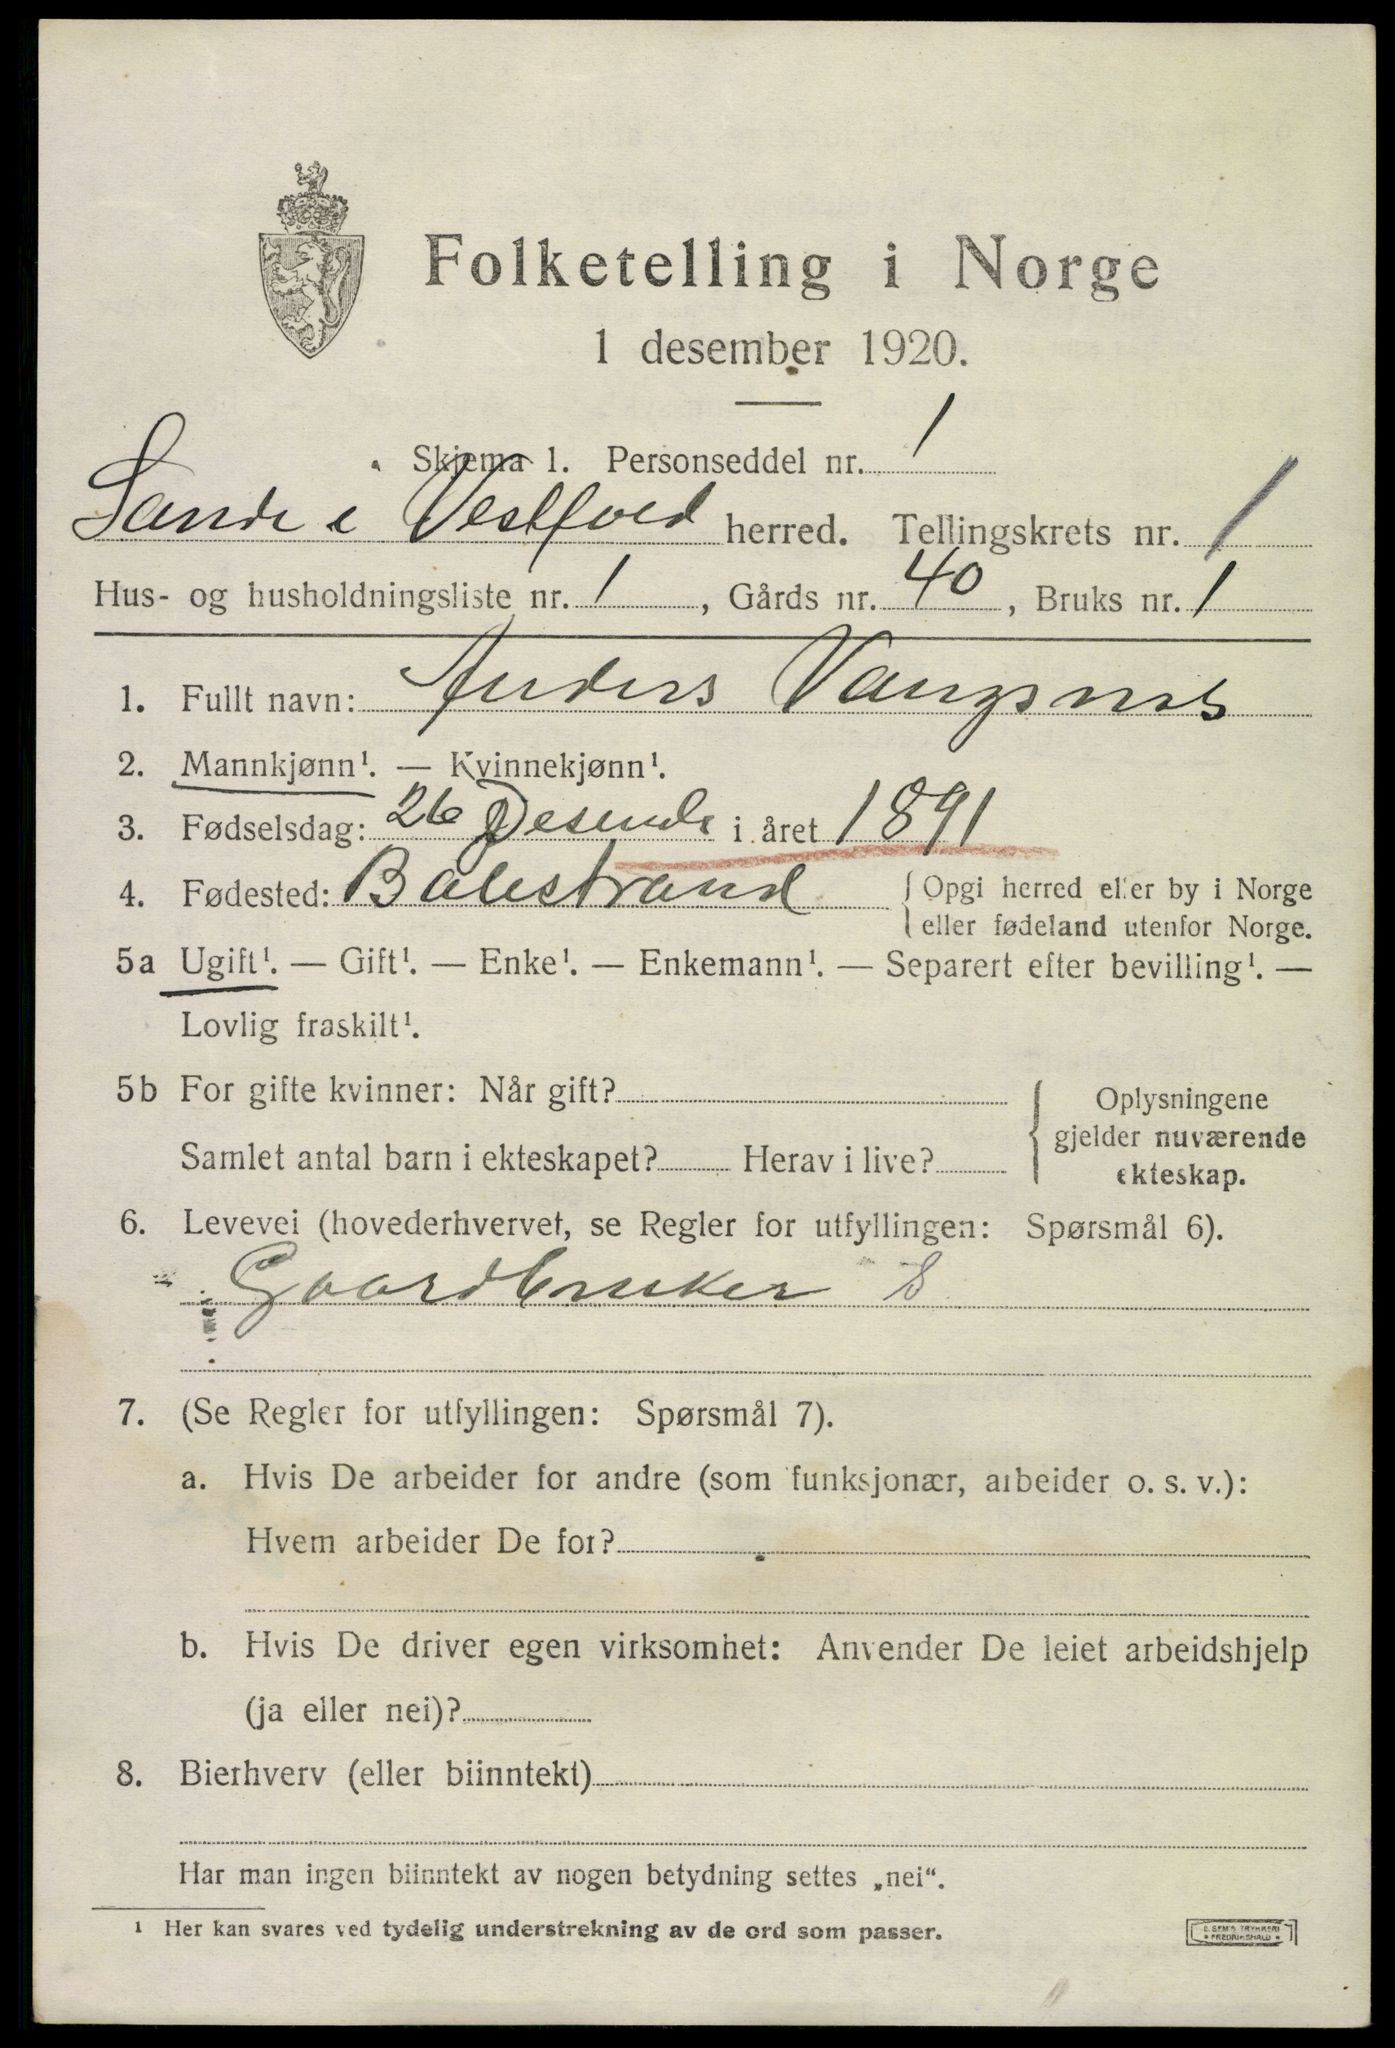 Folketelling i Norge
1 desember 1920.
Skjema 1. Personseddel nr. 1
Sande i Vestfold herred. Tellingskrets nr. 1
Hus- og husholdningsliste nr. 1, Gårds nr. 40, Bruks nr. 1
1. Fullt navn: Anders Vangsnes
2. Mannkjønn¹. — Kvinnekjønn¹.
3. Fødselsdag: 26 Desembr i året 1891
4. Fødested: Balestrand { Opgi herred eller by i Norge
eller fødeland utenfor Norge.
5a Ugift¹. — Gift¹. — Enke¹. — Enkemann¹. — Separert efter bevilling¹. —
Lovlig fraskilt¹.
5b For gifte kvinner: Når gift?
Samlet antal barn i ekteskapet? Herav i live?
Oplysningene
gjelder nuværende
ekteskap.
6. Levevei (hovederhvervet, se Regler for utfyllingen: Spørsmål 6).
Gaardbruker S
7. (Se Regler for utfyllingen: Spørsmål 7).
a. Hvis De arbeider for andre (som funksjonær, arbeider o. s. v.):
Hvem arbeider De for?
b. Hvis De driver egen virksomhet: Anvender De leiet arbeidshjelp
(ja eller nei)?
8. Bierhverv (eller biinntekt)
Har man ingen biinntekt av nogen betydning settes „nei“.
¹ Her kan svares ved tydelig understrekning av de ord som passer.
E. SEM'S TRYKKERI
FREDRIKSHALD